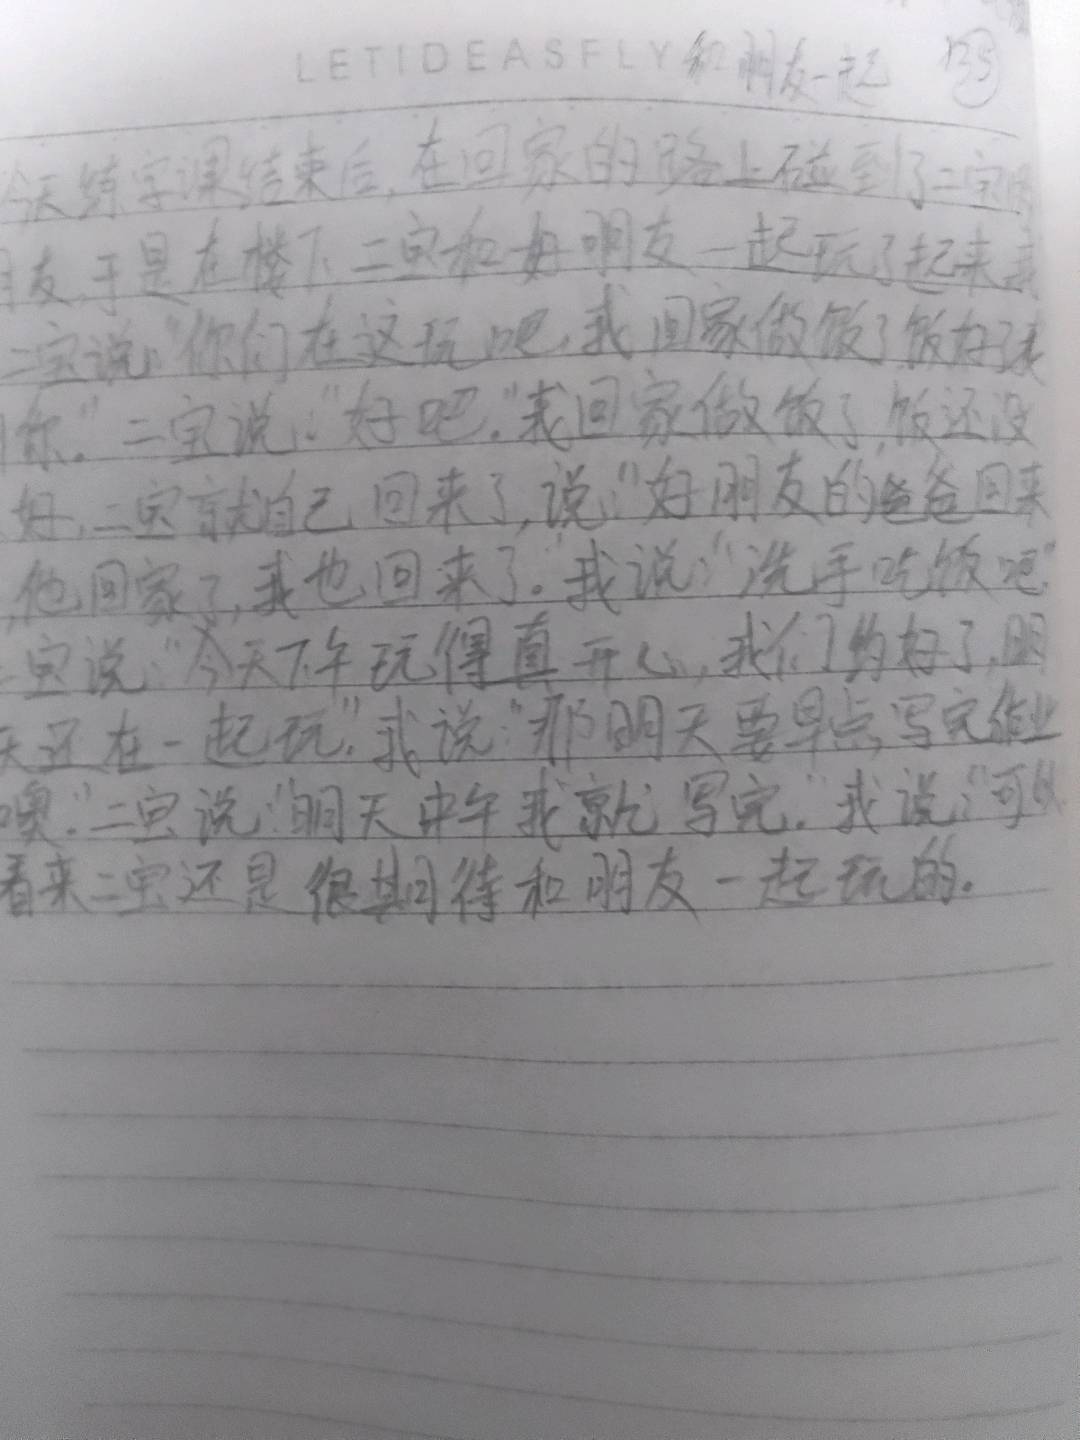 LETIDEASFLY 和朋友一起 135
今天练字课结束后,在回家的路上碰到了二宝
朋友,于是在楼下二宝和好朋友一起玩了起来,我
二宝说:"你们在这玩吧,我回家做饭了,饭好了我
你。"二宝说:"好吧。"我回家做饭了,饭还没
好,二宝就自己回来了,说:"好朋友的爸爸回来
,他回家了,我也回来了。"我说:"洗手吃饭吧"
二宝说:"今天下午玩得真开心,我们约好了,明
天还在一起玩。"我说:"那明天要早点写完作业
噢。"二宝说:"明天中午我就写完。"我说:"可以
看来二宝还是很期待和朋友一起玩的。